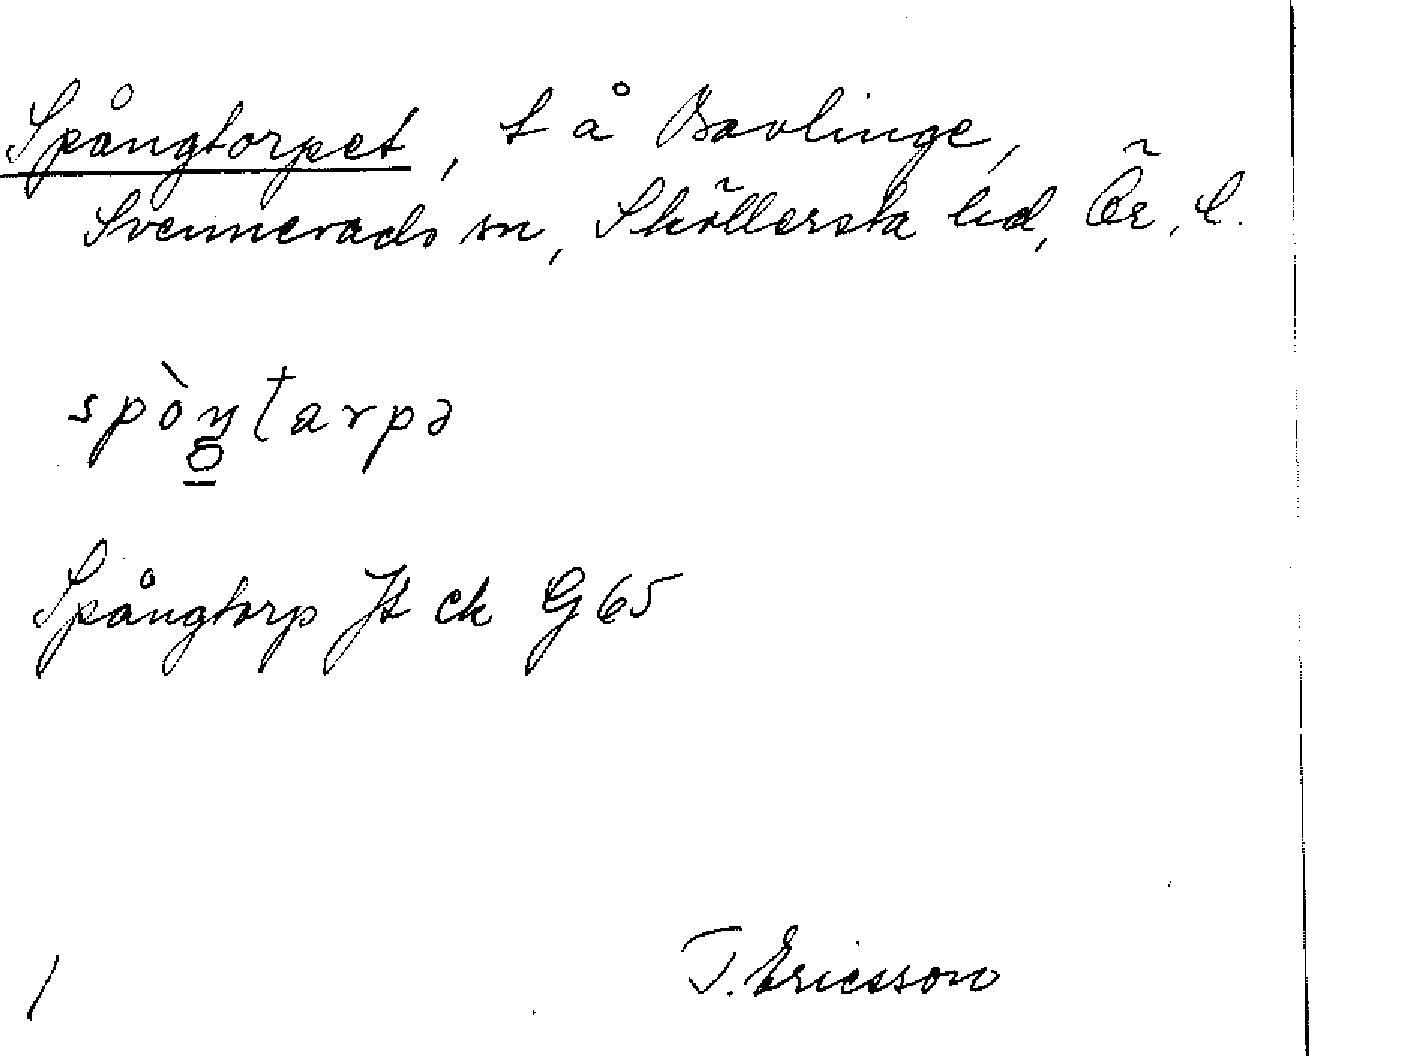 Spångtorpet, t å Bavlinge,
Svennevads sn, Sköllersta hd, Ör. l.
spòntarpə
Spångtorp Jt ek G 65
T. Ericsson